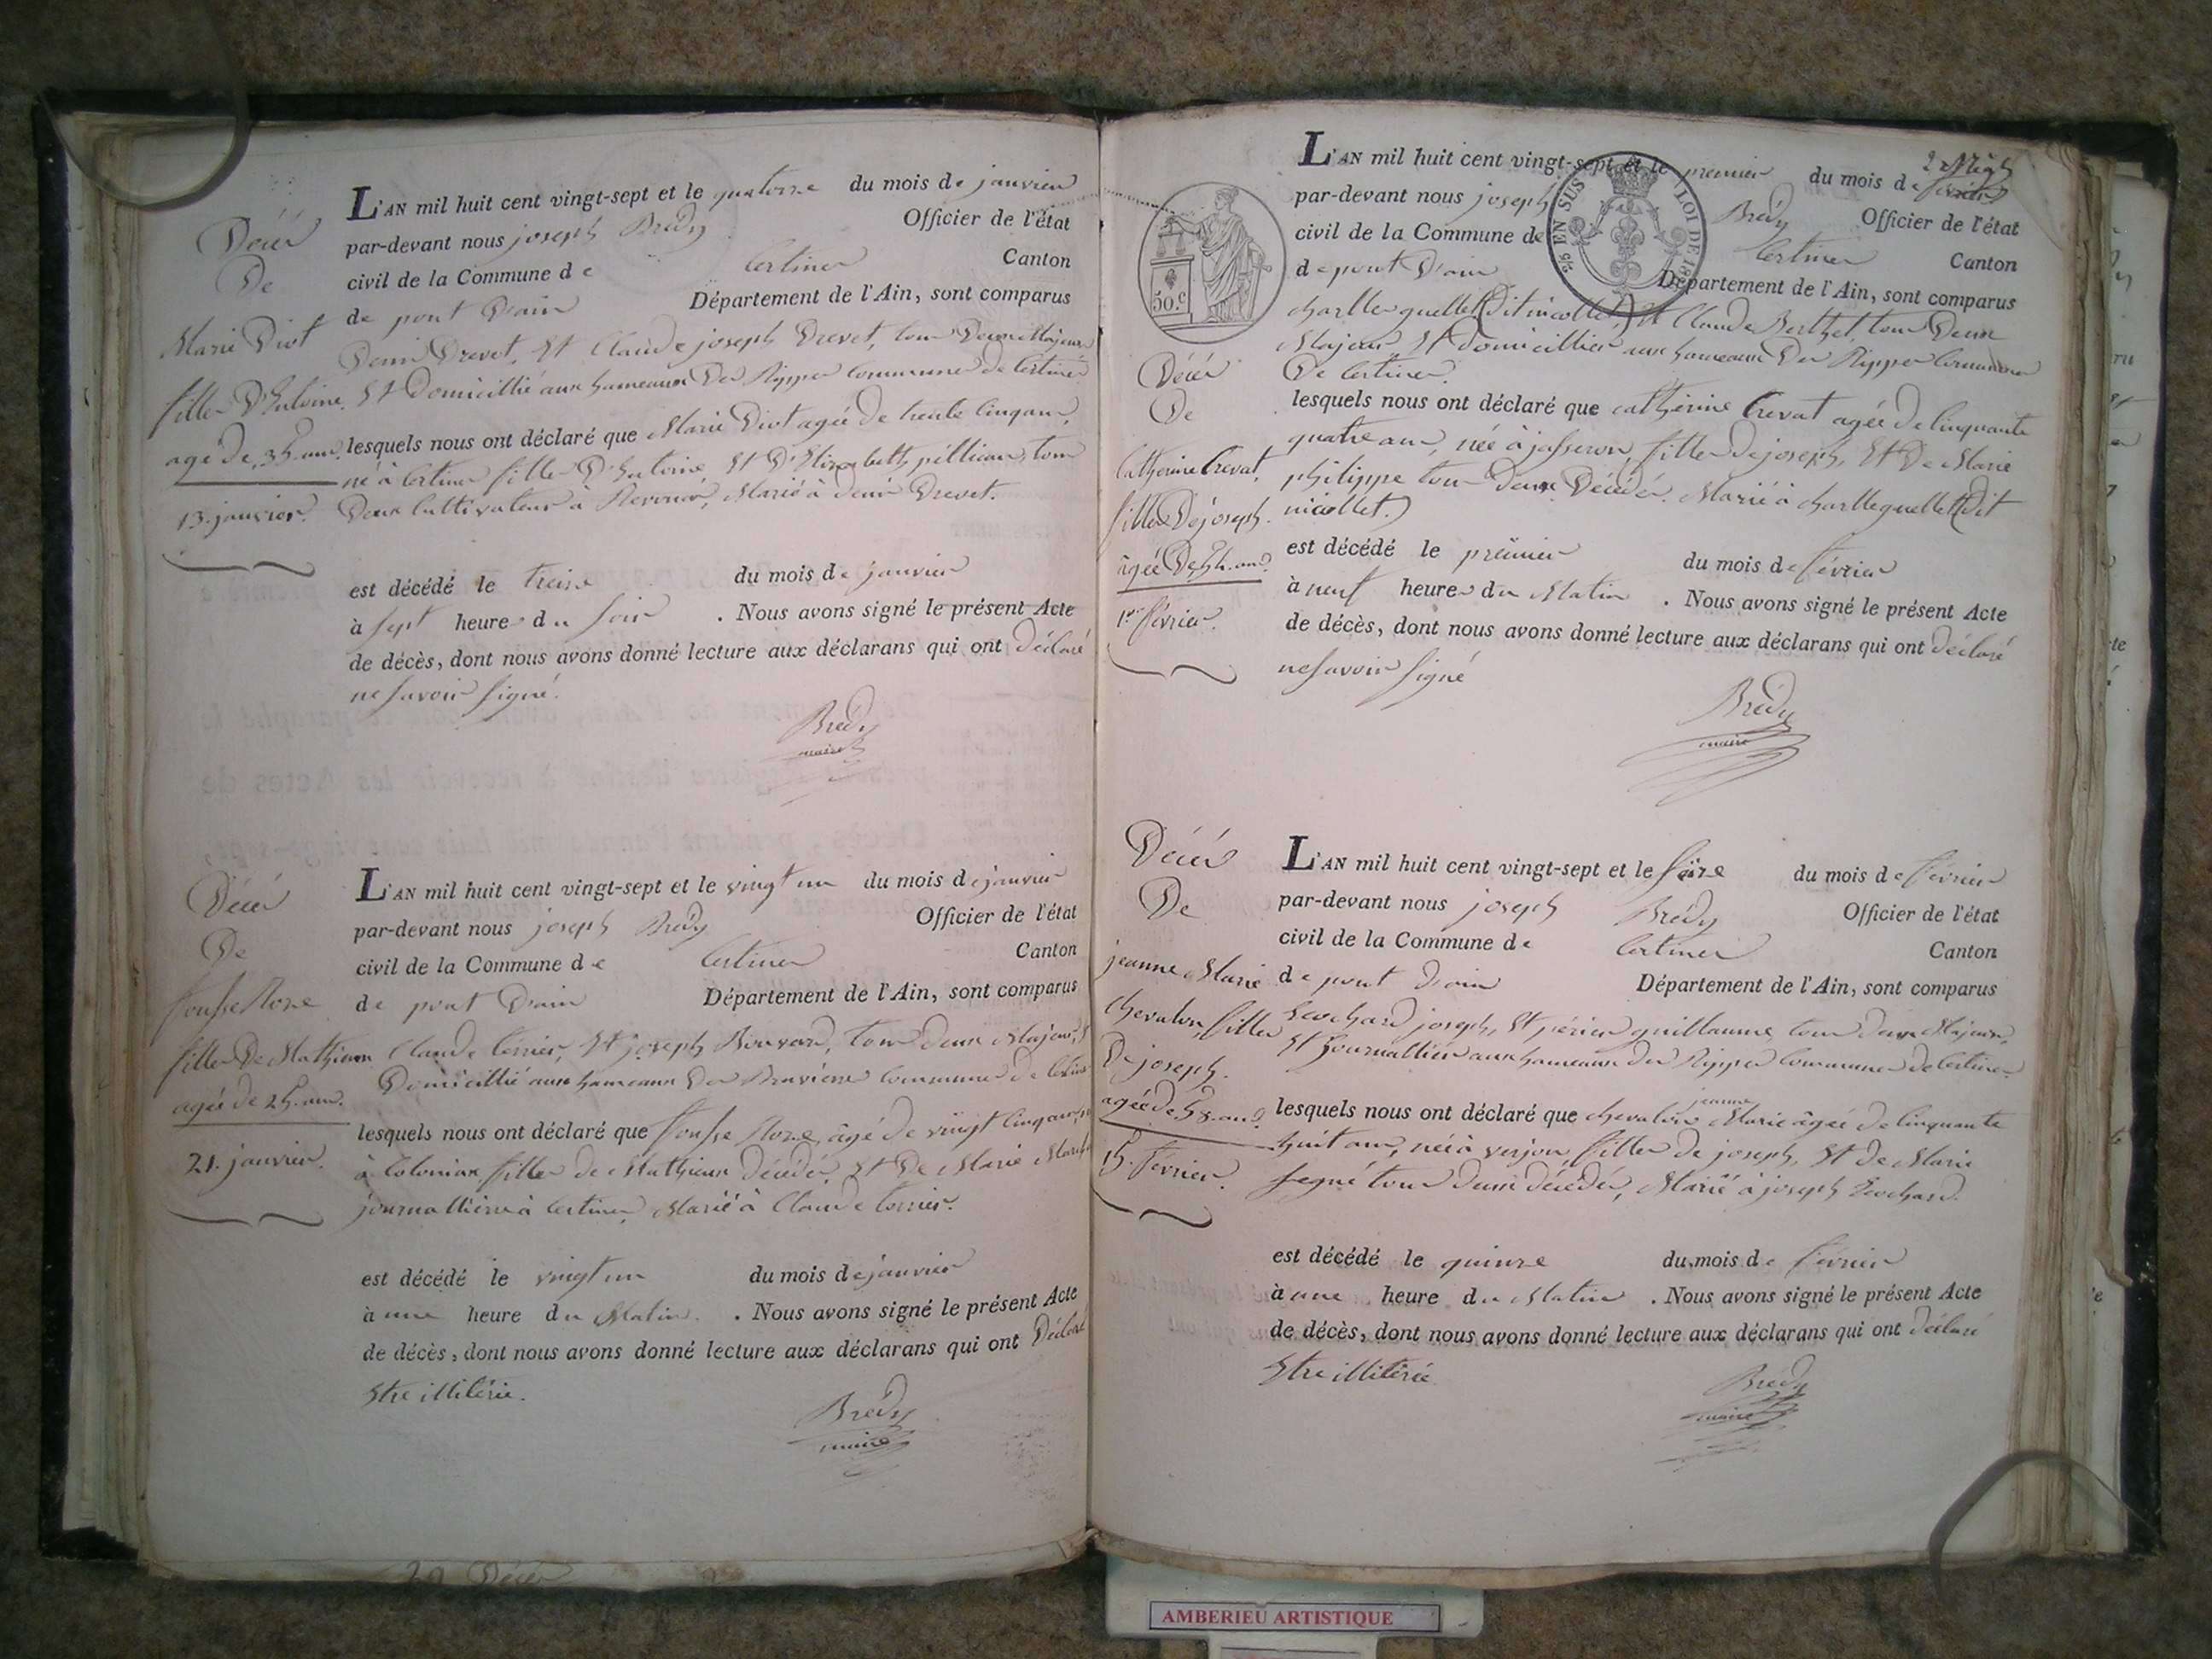 L'AN mil huit cent vingt-sept et le quatorze du mois de janvier
par-devant nous joseph Brédy Officier de l'état
civil de la Commune de Certines Canton
de pont D'ain Département de l'Ain, sont comparus
Denis Drevet, Et Claude joseph Drevet, tous Deux Majeurs
Et Domicillié aux hameaux Des Rippes Commune de Certines
lesquels nous ont déclaré que Marie Diot agée de trente Cinq ans,
né à Certines fille D'Antoine, Et D' tous
Deux Cultivateurs à Marié à Denis Drevet.
est décédé le treize du mois de janvier
à sept heures du soir . Nous avons signé le présent Acte
de décès, dont nous avons donné lecture aux déclarans qui ont Déclaré
ne savoir signé.
Brédy
maire
Décès
De
Marie Diot
fille D'Antoine.
agé de 35 ans.
13. janvier.
L'AN mil huit cent vingt-sept et le vingt un du mois de janvier
par-devant nous joseph Brédy Officier de l'état
civil de la Commune de Certines Canton
de pont D'ain Département de l'Ain, sont comparus
Claude Et joseph Bouvard, tous deux Majeurs, Et
Domicillié aux hameaux Des Commune de Certines
lesquels nous ont déclaré que âgé de vingt Cinq ans,
à fille de Mathieux décédés, Et De Marie
journallière à Certines, Marié à Claude
est décédé le vingt un du mois de janvier
à une heure du Matin. . Nous avons signé le présent Acte
de décès, dont nous avons donné lecture aux déclarans qui ont Déclaré
Etre illitérée.
Brédy
maire
Décès
De
fille De Mathieux
agée de 25. ans.
21. janvier.
2
L'AN mil huit cent vingt-sept et le premier du mois de février
par-devant nous joseph Brédy Officier de l'état
civil de la Commune de Certines Canton
de pont D'ain Département de l'Ain, sont comparus
charlle quellet (dit nicollet,) Et Claude Berthet, tous Deux
Majeurs, Et Domicillier aux hameaux Des Rippes Commune
De Certines.
lesquels nous ont déclaré que catherine Crevat agée de Cinquante
quatre ans, née à jasseron, fille de joseph, Et De Marie
philippe tous Deux Décédés. Marié à charlle quellet (Dit
nicollet.)
est décédé le premier du mois de février
à neuf heures du Matin . Nous avons signé le présent Acte
de décès, dont nous avons donné lecture aux déclarans qui ont déclaré
ne savoir signé
Brédy
maire
50.c
EN SUS LOI DE
Décès
De
Catherine Crevat,
fille De joseph.
âgée De 54. ans.
1er février.
L'AN mil huit cent vingt-sept et le seize du mois de février
par-devant nous joseph Brédy Officier de l'état
civil de la Commune de Certines Canton
de pont D'ain Département de l'Ain, sont comparus
joseph, Et périer guillaume, tous deux Majeurs,
Et journallier aux hameaux des Rippes Commune de Certines.
lesquels nous ont déclaré que chevalon jeanne Marie âgée de Cinquante
huit ans, née à verjon, fille de joseph, Et de Marie
tous deux décédés, Marié à joseph
est décédé le quinze du mois de février
à une heure du Matin . Nous avons signé le présent Acte
de décès, dont nous avons donné lecture aux déclarans qui ont déclaré
Etre illitérée
Brédy
maire
Décès
De
jeanne Marie
chevalon fille
De joseph.
agée de 58. ans.
15. février.
AMBERIEU ARTISTIQUE